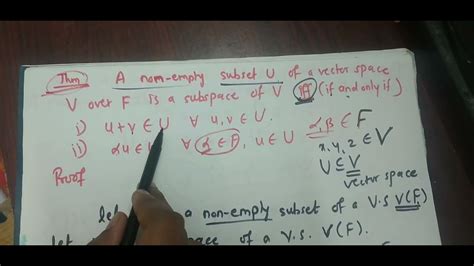 Thm A non-empty subset U of a vector space
V over F is a subspace of V iff (if and only if)
i) u+v ∈ U ∀ u, v ∈ U. α, β ∈ F
ii) αu ∈ ∀ α ∈ F, u ∈ U x, y, z ∈ V
U ⊆ V
vector space
Proof
a non-empty subset of a V.S V(F).
of a V.S. V(F).